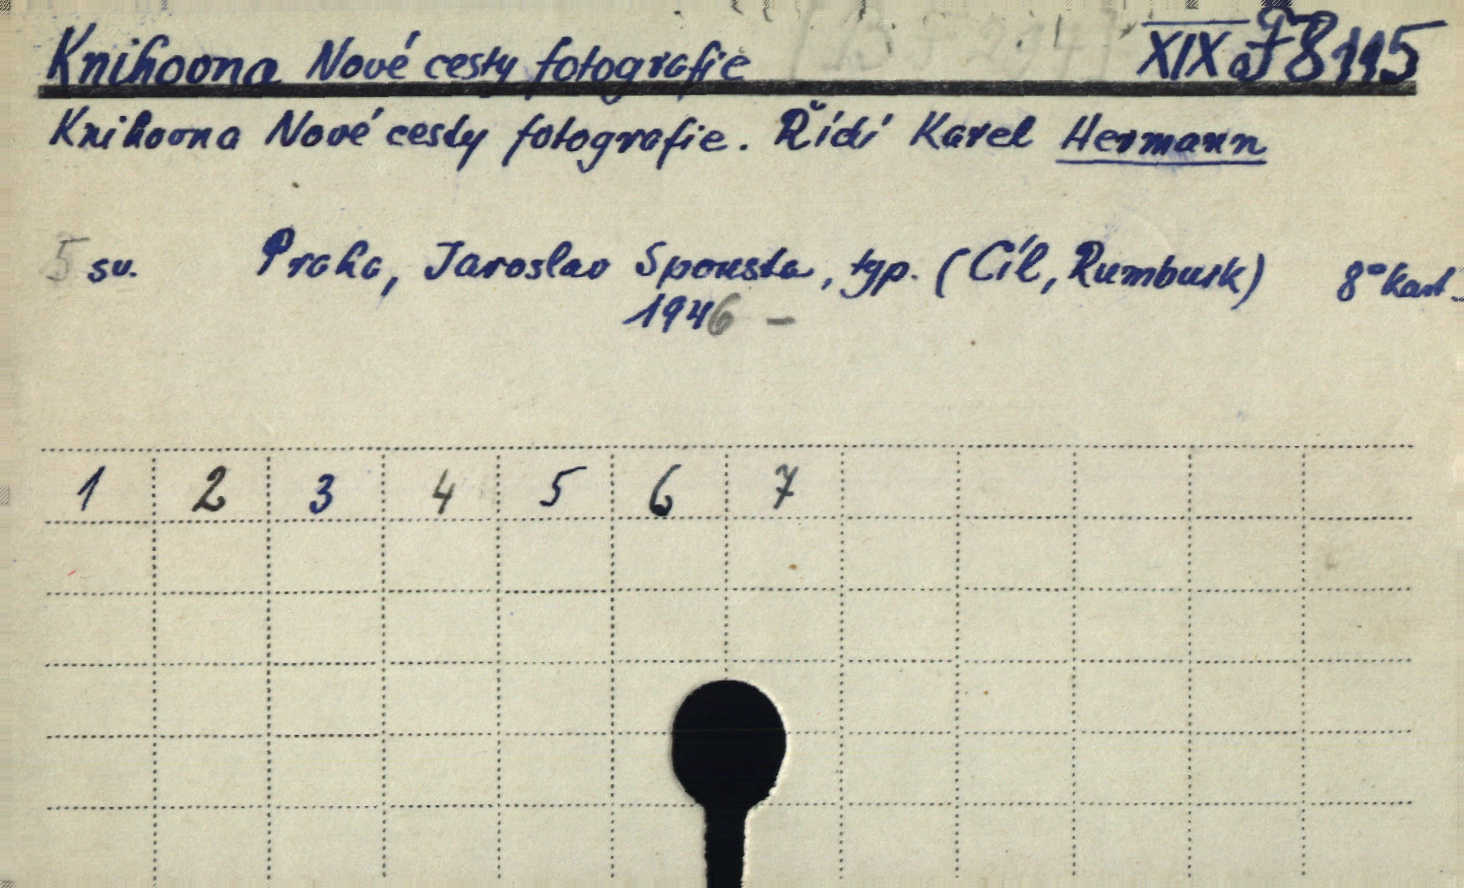 Knihovna Nové cesty fotografie XIX a F 8115
Knihovna Nové cesty fotografie. Řídí Karel Hermann
5 sv. Praha, Jaroslav Spousta, typ. (Cíl, Rumburk) 8° Kart.
1946 -
1 2 3 4 5 6 7